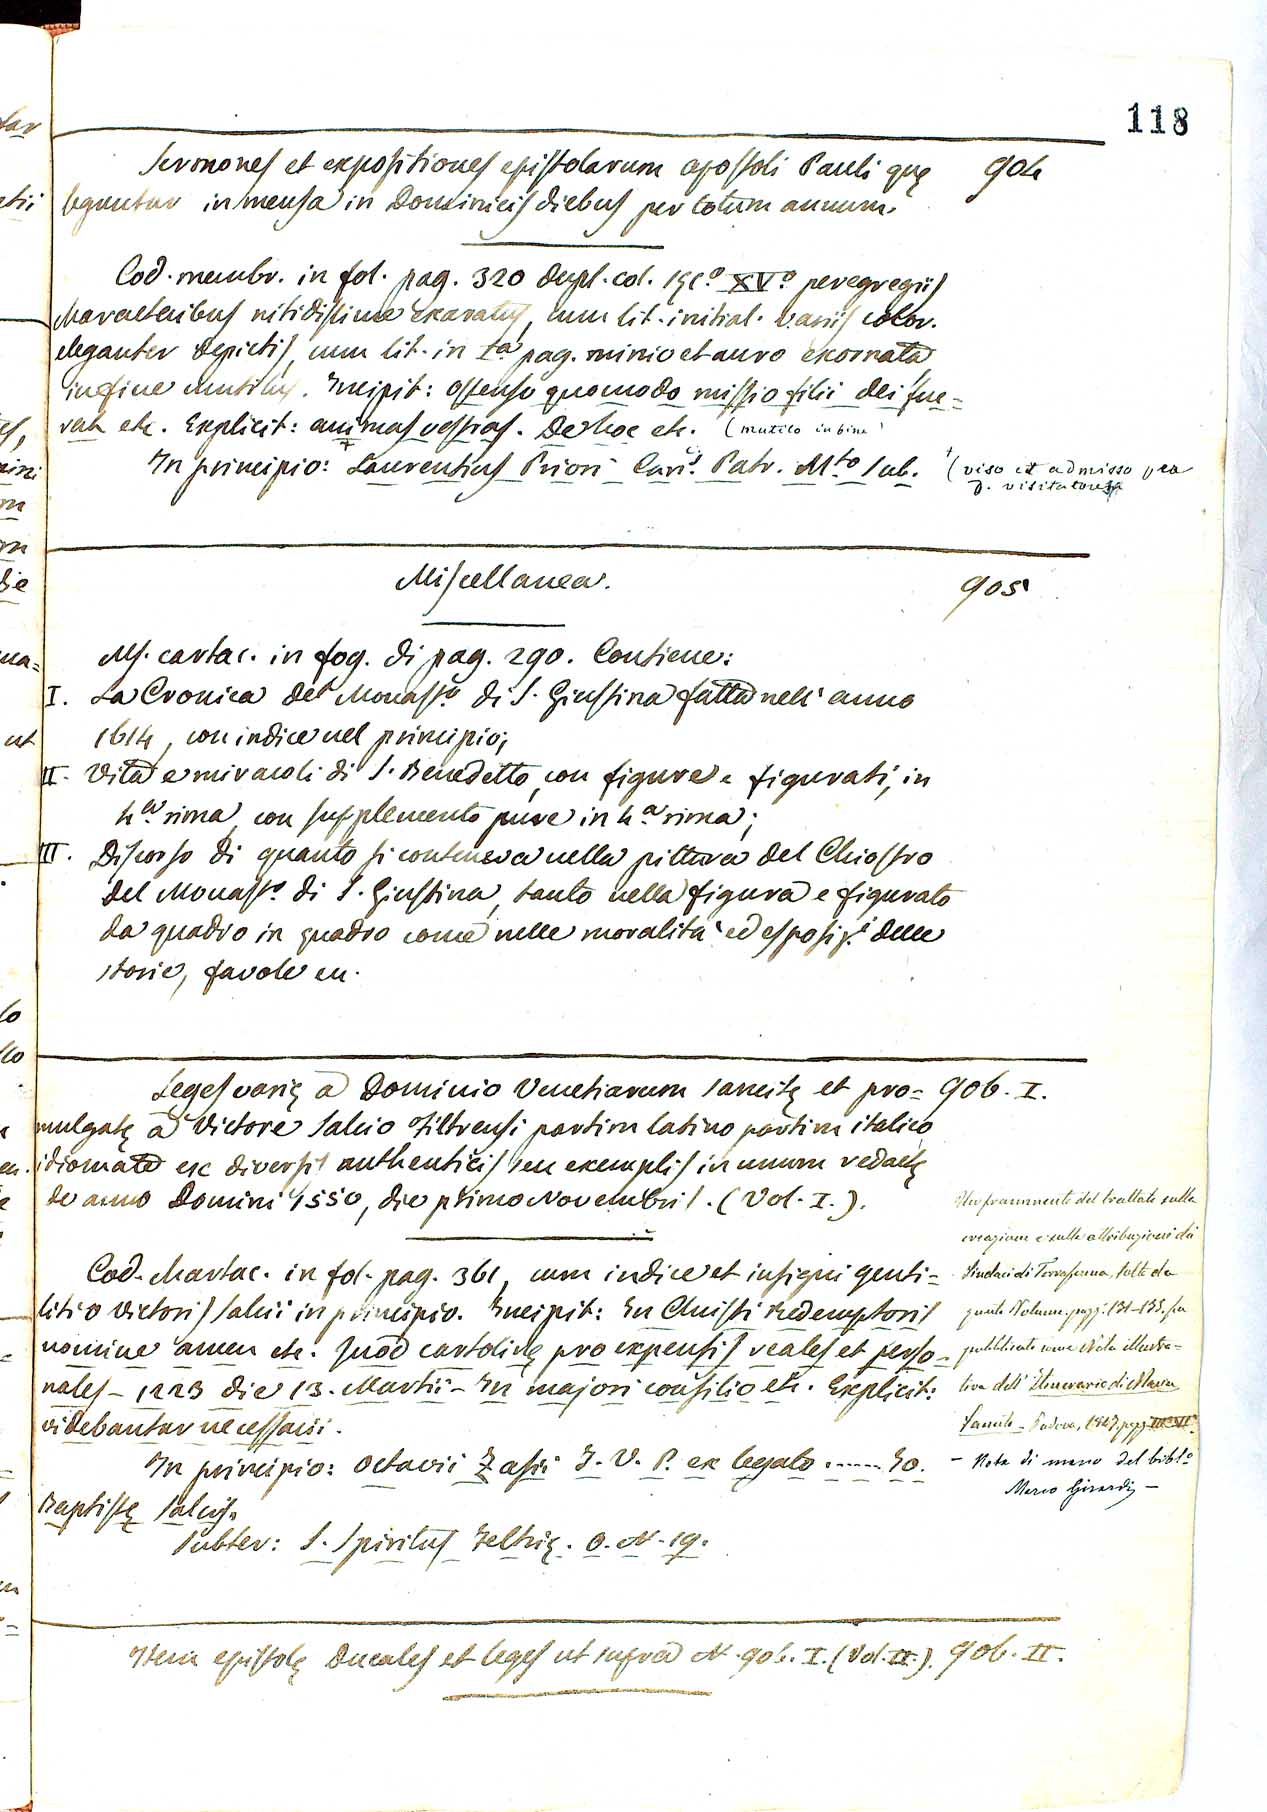 118
Sermones et expositiones epistolarum apostoli Pauli quę 904
leguntur in mensa in Dominicis diebus per totum annum.
Cod. membr. in fol. pag. 320 dupl. col. sęc.º XVº peregregiis
characteribus nitidissime exaratus, cum lit. initial. variis color.
eleganter depictis, cum lit. in Iª pag. minio et auro exornata
in fine mutilus. Incipit: ostenso quomodo missio filii dei fue=
rat etc. Explicit: animas vestras. De hoc etc. (mutilo in fine)
In principio: + Laurentius Priori Patr. Mto. sub. + (viso et admisso pra
d. visitatores
Miscellanea. 905
Ms. cartac. in fog. di pag. 290. Contiene:
I. La Cronica del Monastº. di S. Giustina fatta nell' anno
1614, con indice nel principio;
II. Vita e miracoli di S. Benedetto, con figure e figurati, in
4ª rima, con supplemento pure in 4ª rima;
III. Discorso di quanto si conteneva nella pittura del Chiostro
del Monastº. di S. Giustina, tanto nella figura e figurato
da quadro in quadro come nelle moralità ed esposiz.i delle
storie, favole ec.
Leges varię a Dominio Venetiarum sancitę et pro= 906. I.
mulgatę a Victore Salcio Filtrensi partim latino partim italico
idiomate ex diversis authenticis seu exemplis in unum redactę
de anno Domini 1550, die primo Novembris. (Vol. I.).
Cod. chartac. in fol. pag. 361, cum indice et insigni genti=
litio Victoris Salcii in principio. Incipit: In Christi Redemptoris
nomine amen etc. Quod cartolinę pro expensis reales et perso=
nales – 1223 die 13. Martii – In majori consilio etc. Explicit:
videbantur necessarii.
In principio: Octavii Zasii I. V. P. ex legato ...... Io.
Baptistę Salcis.
Subter: S. Spiritus Feltrię. O. N. 19.
Un frammento del trattato sulla
creazione e sulle attribuzioni dei
Sindaci di Terraferma, tolto da
questo Volume pagg. 131–135. fu
pubblicato come Nota illustra=
tiva dell' Itinerario di Marin
Sanuto – Padova, 1847, pagg.
– Nota di mano del biblº
Marco Girardi –
Item epistolę Ducales et leges ut supra N. 906. I. (Vol. II.). 906. II.